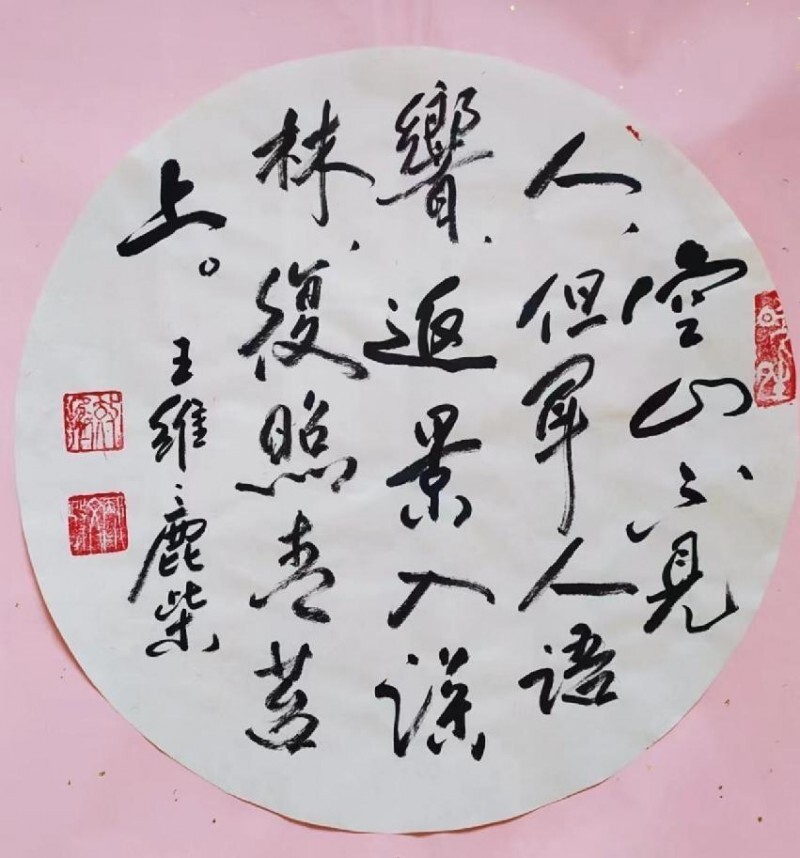 空山不見
人、但聞人語
響、返景入深
林、復照青苔
上。
王維、鹿柴